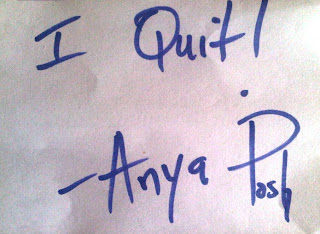 I Quit!
-Anya Posh